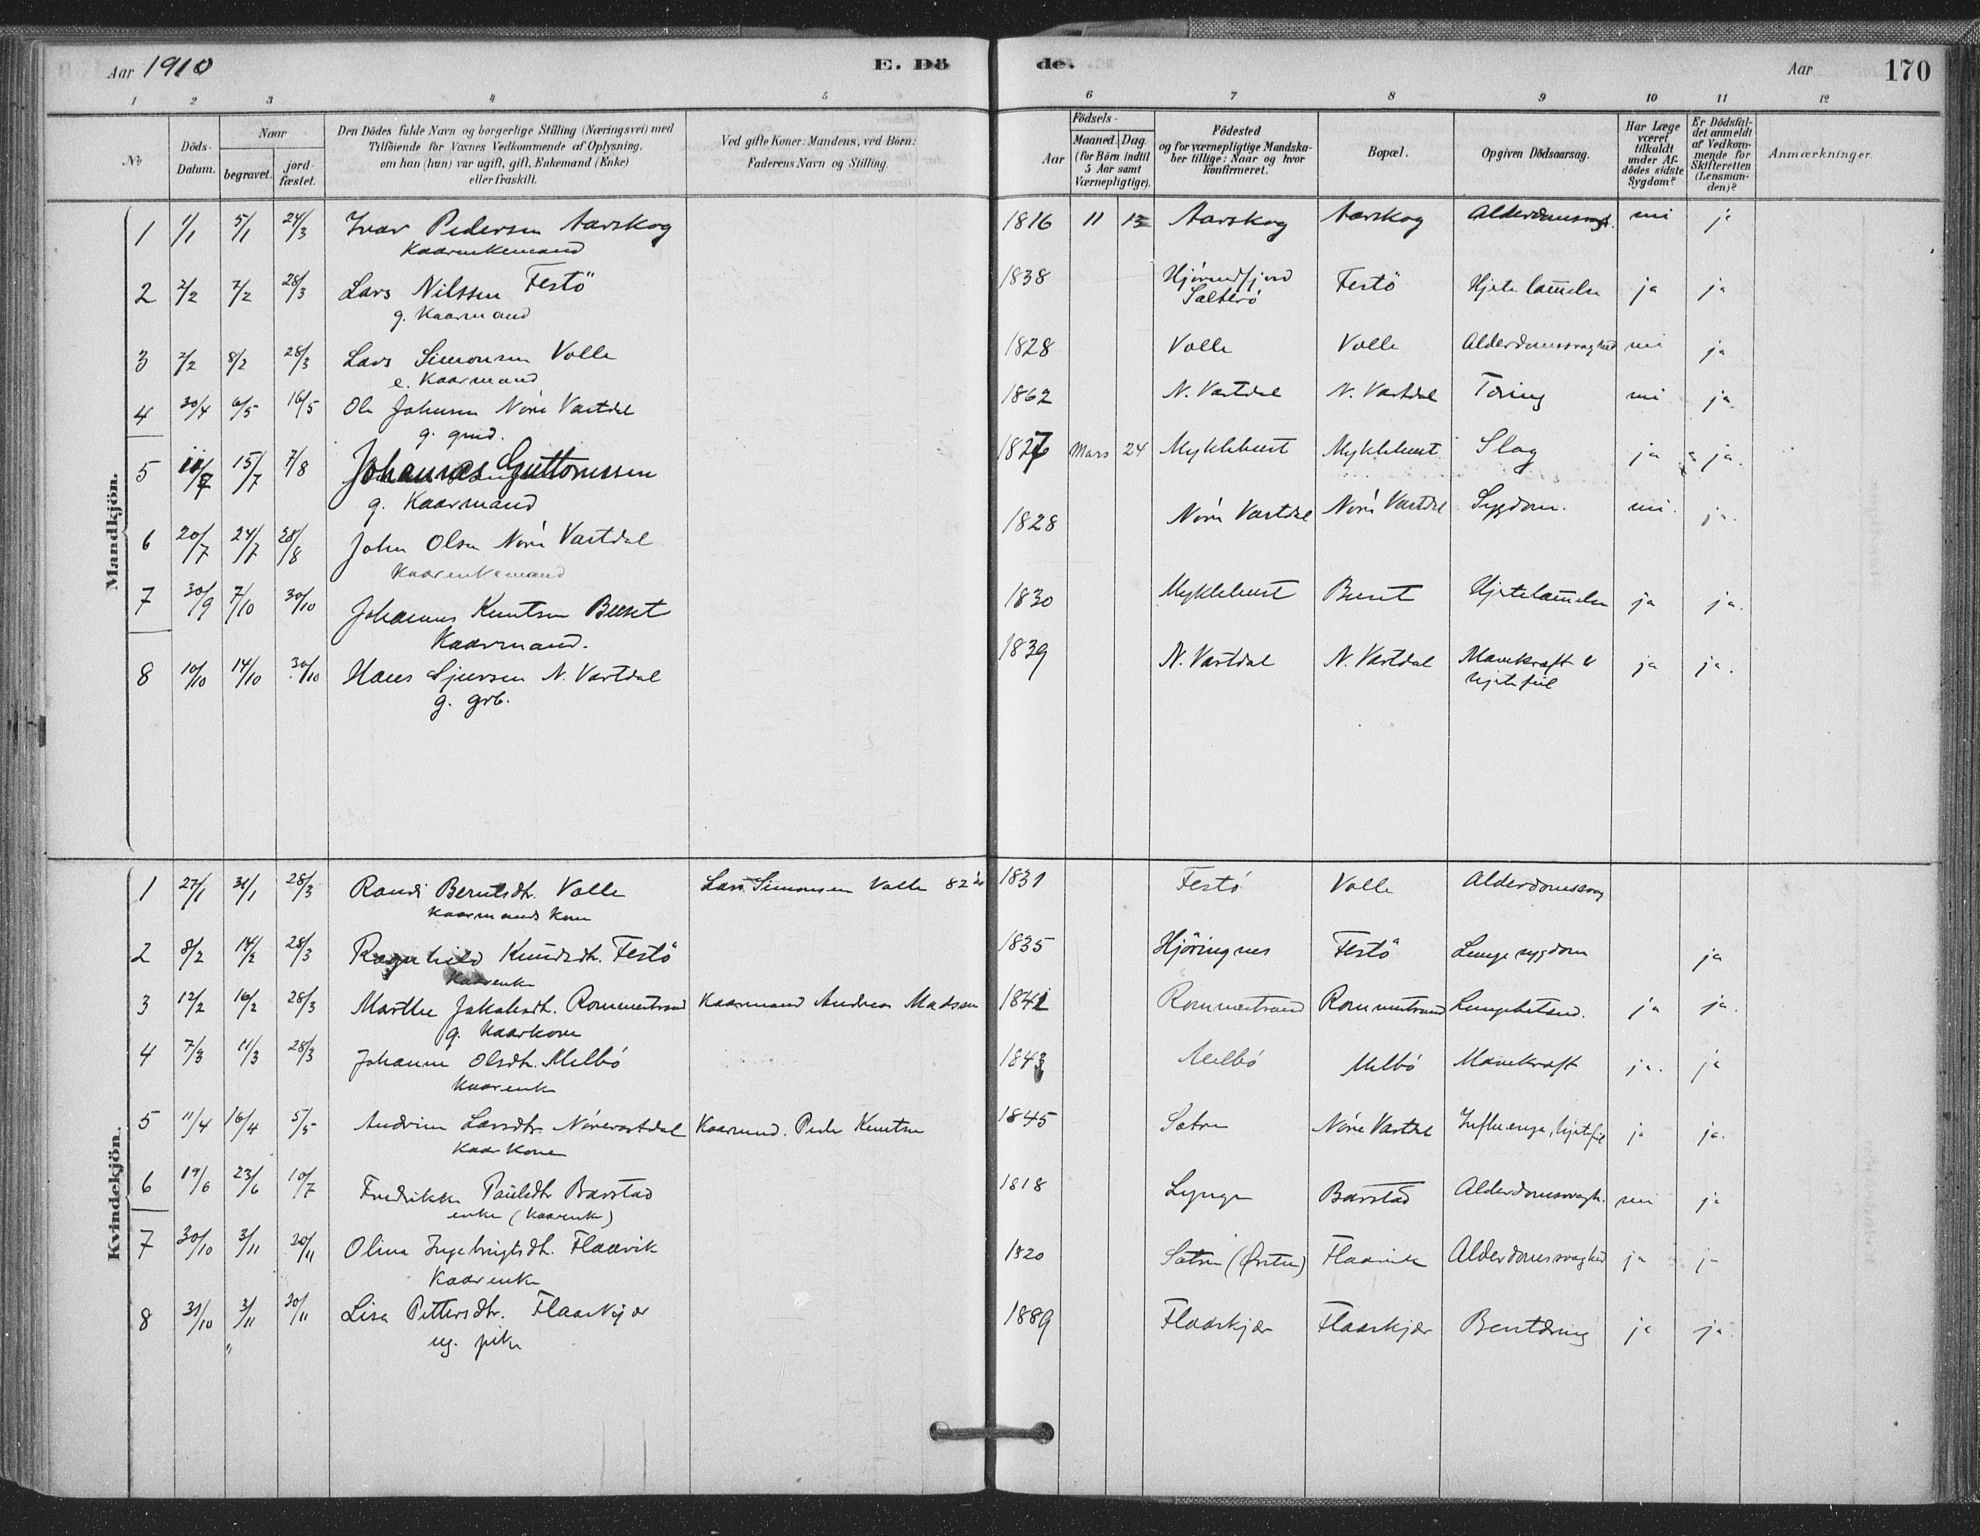 Aar 1910 E. Dö de. Aar 170
1 2 3 4 5 6 7 8 9 10 11 12
No
Döds-Datum.
Naar
begravet.
jord-fæstet.
Den Dödes fulde Navn og borgerlige Stilling (Næringsvei) med
Tilföiende for Voxnes Vedkommende af Oplysning,
om han (hun) var ugift, gift, Enkemand (Enke)
eller fraskilt.
Ved gifte Koner: Mandens, ved Börn:
Faderens Navn og Stilling.
Födsels-
Aar
Maaned. Dag.
(for Börn indtil
5 Aar samt
Værnepligtige).
Födested
og for værnepligtige Mandska-
ber tillige: Naar og hvor
konfirmeret.
Bopæl.
Opgiven Dödsaarsag.
Har Læge
været
tilkaldt
under Af-
dödes sidste
Sygdom?
Er Dödsfal-
det anmeldt
af Vedkom-
mende for
Skifteretten
(Lensman-
den)?
Anmærkninger.
Mandkjön.
1 1/1 5/1 24/3 Ivar Pedersen Aarskog 1816 11 Aarskog Aarskog nei ja
Kaarenkemand
2 2/2 7/2 28/3 Lars Nilssen Festö 1838 Hjörundfjord Festö Hjertelammelse ja ja
g. Kaarmand Sæterö
3 2/2 8/2 28/3 Lars Simonsen Valle 1828 Valle Valle Alderdomssvaghed nei ja
e. Kaarmand
4 30/4 6/5 16/5 Ole Johnsen Nöre Vartdal 1862 N. Vartdal N. Vartdal Tæring nei ja
g. grd.
5 11/7 15/7 7/8 Johannes Guttormssen 1827 Mars 24 Myklebust Myklebust Slag ja ja.
g. Kaarmand
6 20/7 24/7 28/8 John Olsen Nöre Vartdal 1828 Nöre Vartdal Nöre Vartdal Sygdom. nei. ja.
Kaarenkemand
7 30/9 7/10 30/10 Johannes Knutsen Buset 1830 Myklebust Buset Hjertelammelse ja ja.
Kaarmand.
8 10/10 14/10 30/10 Hans Sjursen N. Vartdal 1839 N. Vartdal N. Vartdal Mavekræft & ja ja.
g. grb. hjertefeil
Kvindekjön.
1 27/1 31/1 28/3 Randi Berntsdtr. Valle Lars Simonsen Valle 1831 Festö Valle Alderdomssvag
Kaarmands Kone
2 8/2 14/2 28/3 Ragnhild Knudsdtr. Festö 1835 Hjöringnes Festö Lungesygdom ja
Kaarenke
3 12/2 16/2 28/3 Marthe Jakobsdtr. Rommestrand Kaarmand Andreas Madssen 1841 Rommestrand Rommestrand Lungebetænd. ja ja.
g. Kaarkone
4 7/3 11/3 28/3 Johanne Olsdtr. Melbö 1843 Melbö Melbö Mavekræft ja. ja
Kaarenke
5 11/4 16/4 5/5 Andrine Larsdtr. Nörevartdal Kaarmd. Peder Knutsen 1845 Sætre Nöre Vartdal Influenza, hjertefeil ja ja.
Kaarkone
6 19/6 23/6 10/7 Fredrikke Paulsdtr Barstad 1818 Lynge Barstad Alderdomssvagh. nei ja
enke (Kaarenke)
7 30/10 3/11 20/11 Oline Ingebrigtsdtr. Flaavik 1820 Sætre (Örsten) Flaavik Alderdomssvaghed ja ja
Kaarenke
8 31/10 3/11 20/11 Lisa Pettersdtr. Flaaskjær 1889 Flaaskjær Flaaskjær Bentæring ja ja
" ug. pike